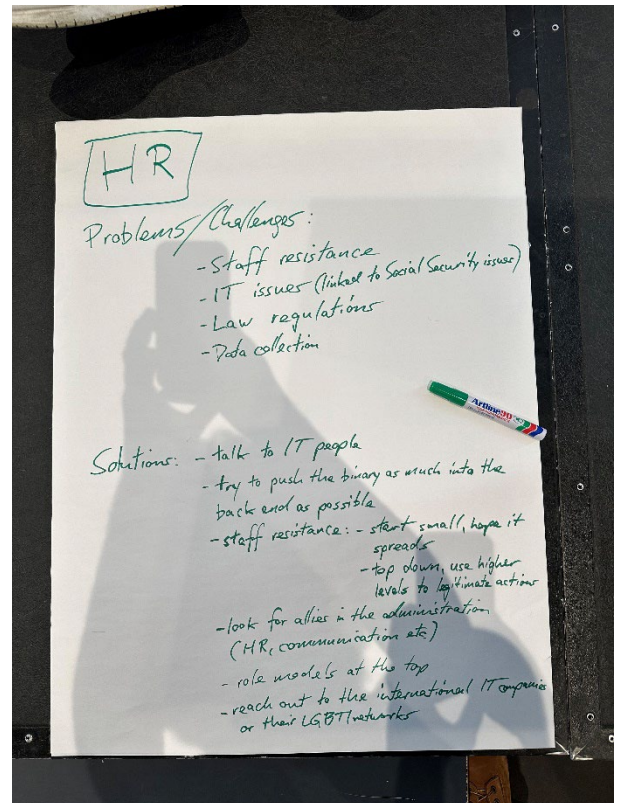 HR
Problems/Challenges:
- Staff resistance
- IT issues (linked to Social Security issues)
- Law regulations
- Data collection
Artline 90
Solutions: - talk to IT people
- try to push the binary as much into the
back end as possible
- staff resistance: - start small, hope it
spreads
- top down, use higher
levels to legitimate actions
- look for allies in the administration
(HR, communication etc)
- role models at the top
- reach out to the international IT companies
or their LGBTI networks